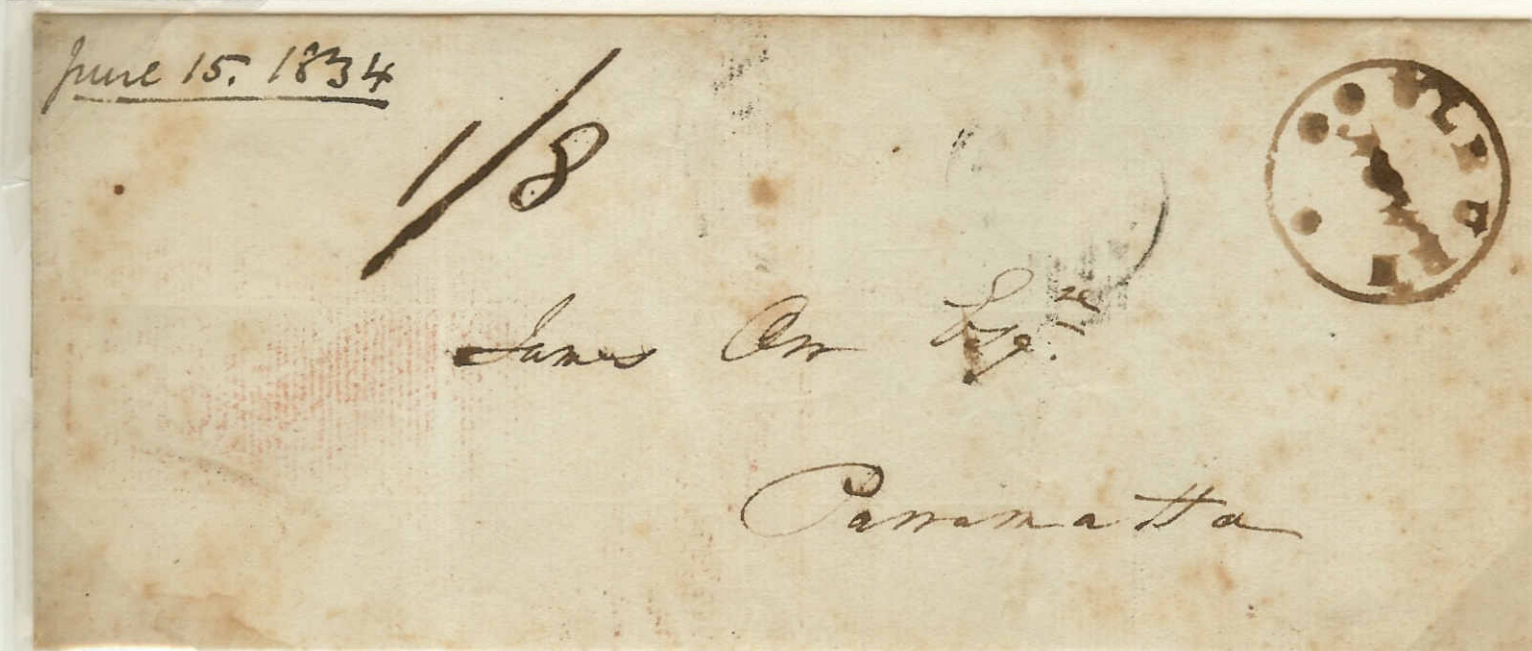 June 15. 1834
1/8
James Orr Esqre
Parramatta